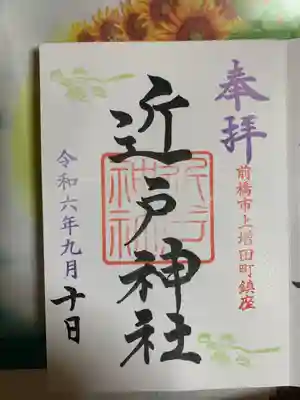 奉拝
前橋市上増田町鎮座
近戸神社
令和六年九月十日
近戸
神社